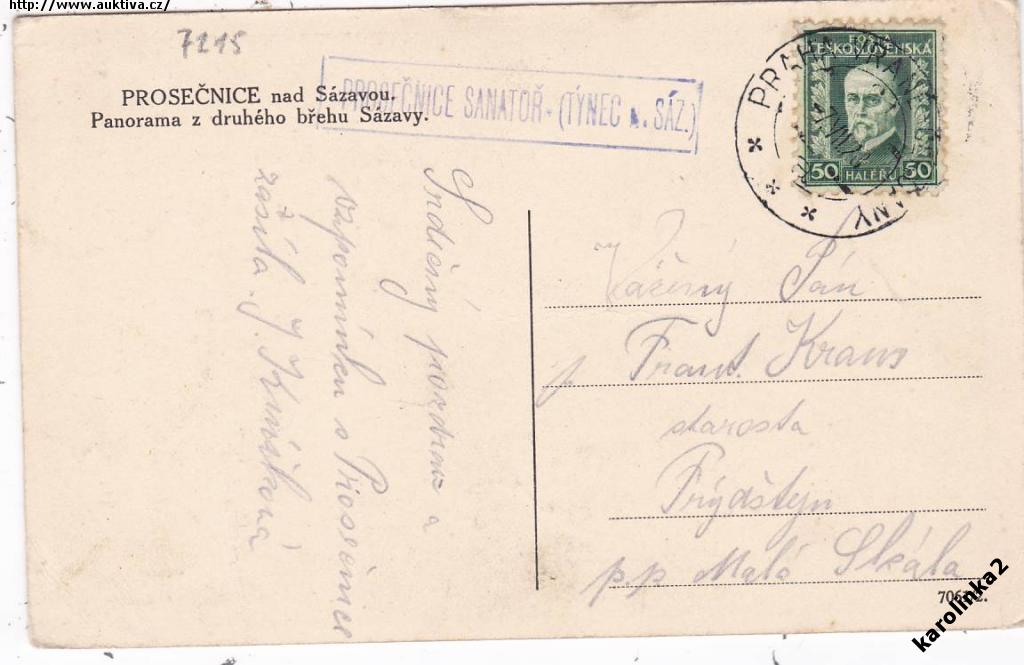 http://www.auktiva.cz/
7215
PROSEČNICE nad Sázavou.
Panorama z druhého břehu Sázavy.
PROSEČNICE SANATOŘ. (TÝNEC n. SÁZ.)
POŠTA
ČESKOSLOVENSKÁ
50 HALÉŘŮ 50
PRAHA
Srdečný pozdrav a
vzpomínku s Prosečnice
zasílá J.
Vážený Pán
p Frant. Kraus
starosta
Frýdštejn
p.p Malá Skála
karolinka2